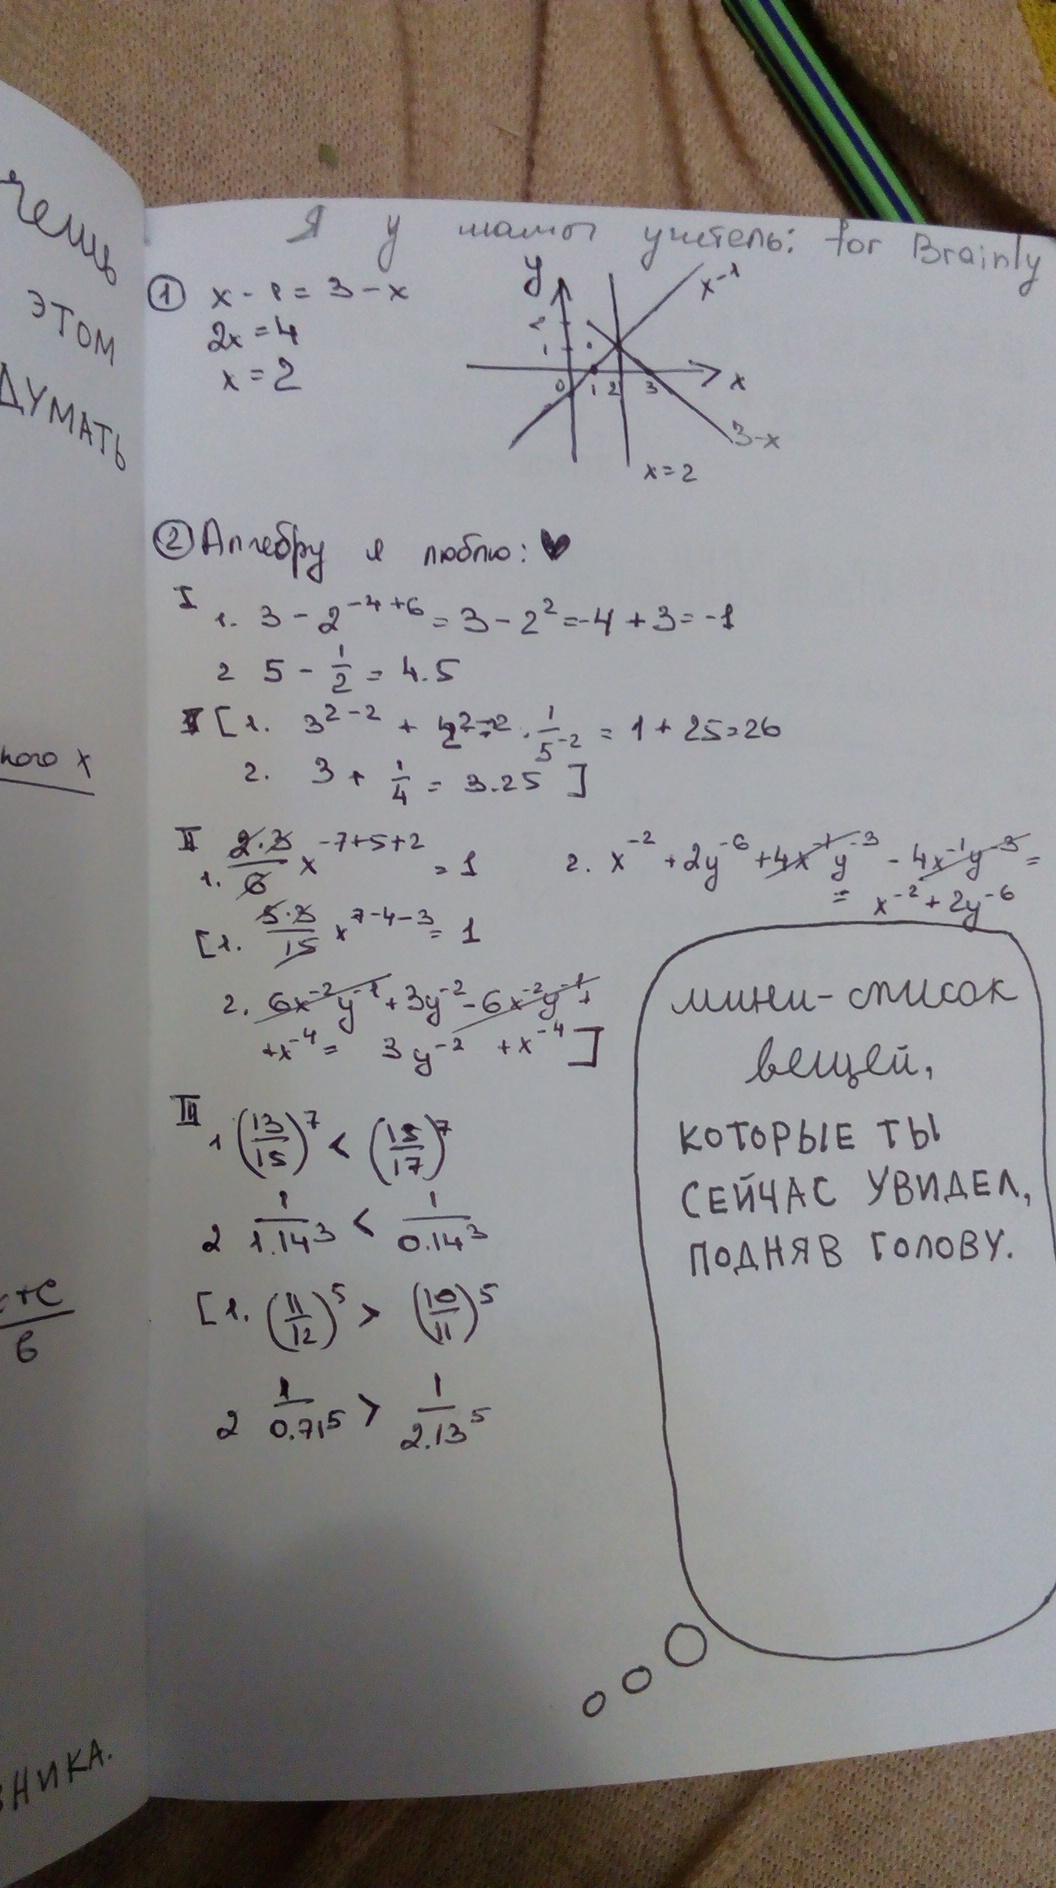 чешь
этом
думать
ного x
+c
в
вника.
Я у мамы учитель: for Brainly
① x - 1 = 3 - x
2x = 4
x = 2
y
x-1
2
1
0 1 2 3
x
3-x
x=2
② Алгебру я люблю: ♥
I 1. 3 - 2^{-4+6} = 3 - 2^2 = -4 + 3 = -1
2 5 - 1/2 = 4.5
[1. 3^{2-2} + · 1/5^{-2} = 1 + 25 = 26
2. 3 + 1/4 = 3.25 ]
II 1. 2·3/6 x^{-7+5+2} = 1
2. x^{-2} + 2y^{-6} + 4x^{-1}y^{-3} - 4x^{-1}y^{-3} =
= x^{-2} + 2y^{-6}
[1. 5·3/15 x^{7-4-3} = 1
2. 6x^{-2}y^{-1} + 3y^{-2} - 6x^{-2}y^{-1} +
+x^{-4} = 3y^{-2} + x^{-4} ]
III 1 (13/15)^7 < (15/17)^7
2 1/1.14^3 < 1/0.14^3
[1. (11/12)^5 > (10/11)^5
2 1/0.71^5 > 1/2.13^5
мини-список
вещей,
КОТОРЫЕ ТЫ
СЕЙЧАС УВИДЕЛ,
ПОДНЯВ ГОЛОВУ.